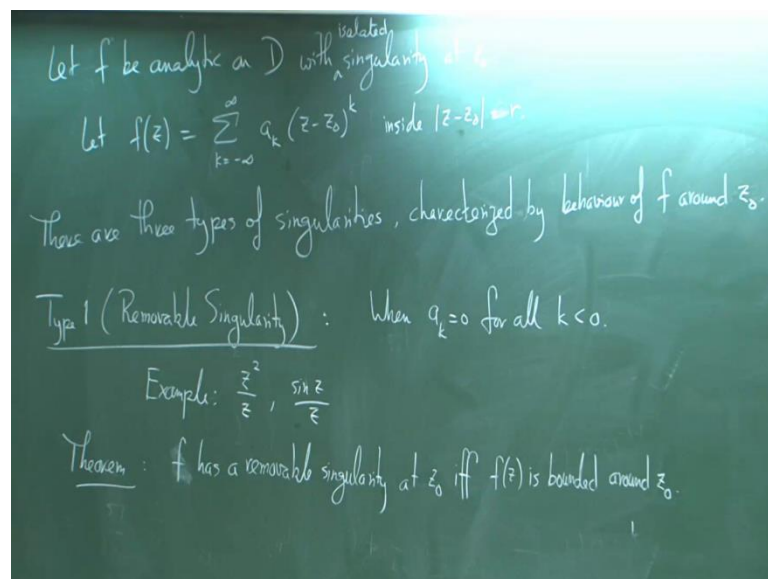 Let f be analytic on D with an isolated singularity at z₀
Let f(z) = ∑_{k=-∞}^{∞} a_k (z-z₀)^k inside |z-z₀| = r.
There are three types of singularities, charecterized by behaviour of f around z₀.
Type 1 (Removable Singularity) : When a_k=0 for all k<0.
Example: z²/z , sin z/z
Theorem : f has a removable singularity at z₀ iff f(z) is bounded around z₀.